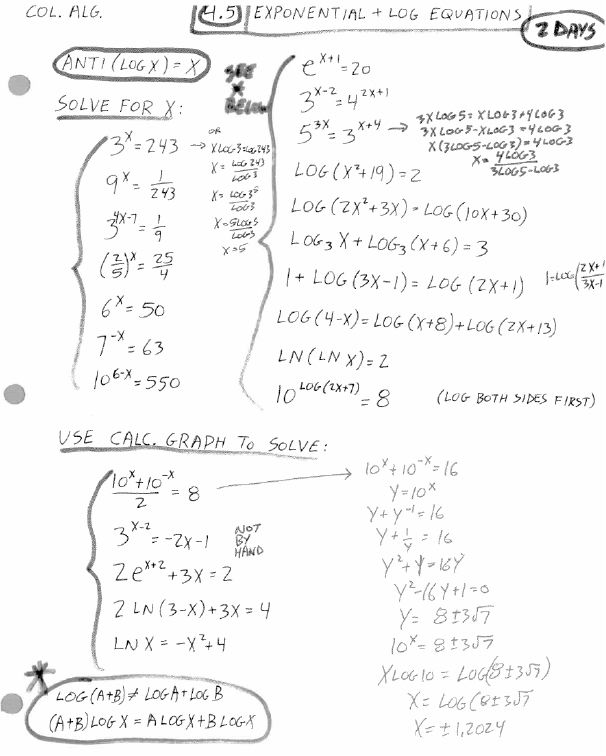 COL. ALG.
4.5 EXPONENTIAL + LOG EQUATIONS
2 DAYS
ANTI (LOG X) = X
SEE
*
BELOW
SOLVE FOR X:
3^X = 243
→ OR
X LOG 3 = LOG 243
X = LOG 243 / LOG 3
X = LOG 3^5 / LOG 3
X = 5 LOG 3 / LOG 3
X = 5
9^X = 1/243
3^(4X-7) = 1/9
(2/5)^X = 25/4
6^X = 50
7^-X = 63
10^(6-X) = 550
e^(X+1) = 20
3^(X-2) = 4^(2X+1)
5^(3X) = 3^(X+4) →
3X LOG 5 = X LOG 3 + 4 LOG 3
3X LOG 5 - X LOG 3 = 4 LOG 3
X (3 LOG 5 - LOG 3) = 4 LOG 3
X = 4 LOG 3 / 3 LOG 5 - LOG 3
LOG (X²+19) = 2
LOG (2X²+3X) = LOG (10X+30)
LOG₃ X + LOG₃ (X+6) = 3
1 + LOG (3X-1) = LOG (2X+1)
1 = LOG (2X+1 / 3X-1
LOG (4-X) = LOG (X+8) + LOG (2X+13)
LN (LN X) = 2
10^(LOG (2X+7)) = 8 (LOG BOTH SIDES FIRST)
USE CALC. GRAPH TO SOLVE:
10^X + 10^-X / 2 = 8 →
3^(X-2) = -2X-1
NOT
BY
HAND
2e^(X+2) + 3X = 2
2 LN (3-X) + 3X = 4
LN X = -X² + 4
10^X + 10^-X = 16
Y = 10^X
Y + Y^-1 = 16
Y + 1/Y = 16
Y² + 1 = 16Y
Y² - 16Y + 1 = 0
Y = 8 ± 3√7
10^X = 8 ± 3√7
X LOG 10 = LOG (8 ± 3√7)
X = LOG (8 ± 3√7
X = ± 1.2024
*
LOG (A+B) ≠ LOG A + LOG B
(A+B) LOG X = A LOG X + B LOG X